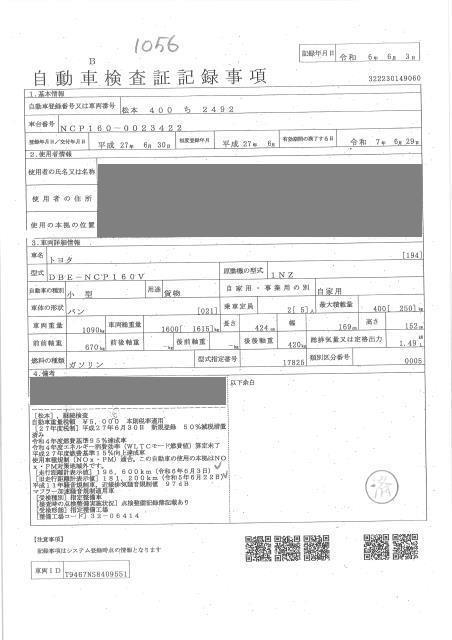 1056
記録年月日 令和 6年 6月 3日
B
自動車検査証記録事項
322230149060
1.基本情報
自動車登録番号又は車両番号 松本 400 ち 2492
車台番号 NCP160-0023422
登録年月日/交付年月日 平成 27年 6月 30日 初度登録年月 平成 27年 6月 有効期間の満了する日 令和 7年 6月 29日
2.使用者情報
使用者の氏名又は名称
使用者の住所
使用の本拠の位置
3.車両詳細情報
車名 トヨタ [194]
型式 DBE-NCP160V 原動機の型式 1NZ
自動車の種別 小型 用途 貨物 自家用・事業用の別 自家用
車体の形状 バン [021] 乗車定員 2[ 5]人 最大積載量 400[ 250]kg
車両重量 1090kg 車両総重量 1600[ 1615]kg 長さ 424cm 幅 169cm 高さ 152cm
前前軸重 670kg 前後軸重 -kg 後前軸重 -kg 後後軸重 420kg 総排気量又は定格出力 1.49L
燃料の種類 ガソリン 型式指定番号 17825 類別区分番号 0005
4.備考
以下余白
[松本],継続検査
自動車重量税額 ¥5,000 本則税率適用
[27年度税制]平成27年6月30日 新規登録 50%減税措置
済み
令和4年度燃費基準95%達成車
令和4年度エネルギー消費効率(WLTCモード燃費値)算定未了
平成27年度燃費基準15%向上達成車
使用車種規制(NOx・PM)適合。この自動車の使用の本拠はNO
x・PM対策地域外です。
[走行距離計表示値]196,600km(令和6年6月3日)
[旧走行距離計表示値]181,200km(令和5年6月22日)
平成11年騒音規制車、近接排気騒音規制値 97dB
マフラー加速騒音規制適用車
[受検種別]指定整備車
[検査時の点検整備実施状況]点検整備記録簿記載あり
[受検形態]指定整備工場
[整備工場コード]32-06414
[注意事項]
記録事項はシステム登録時点の情報となります
車両ID T9467NS8409551